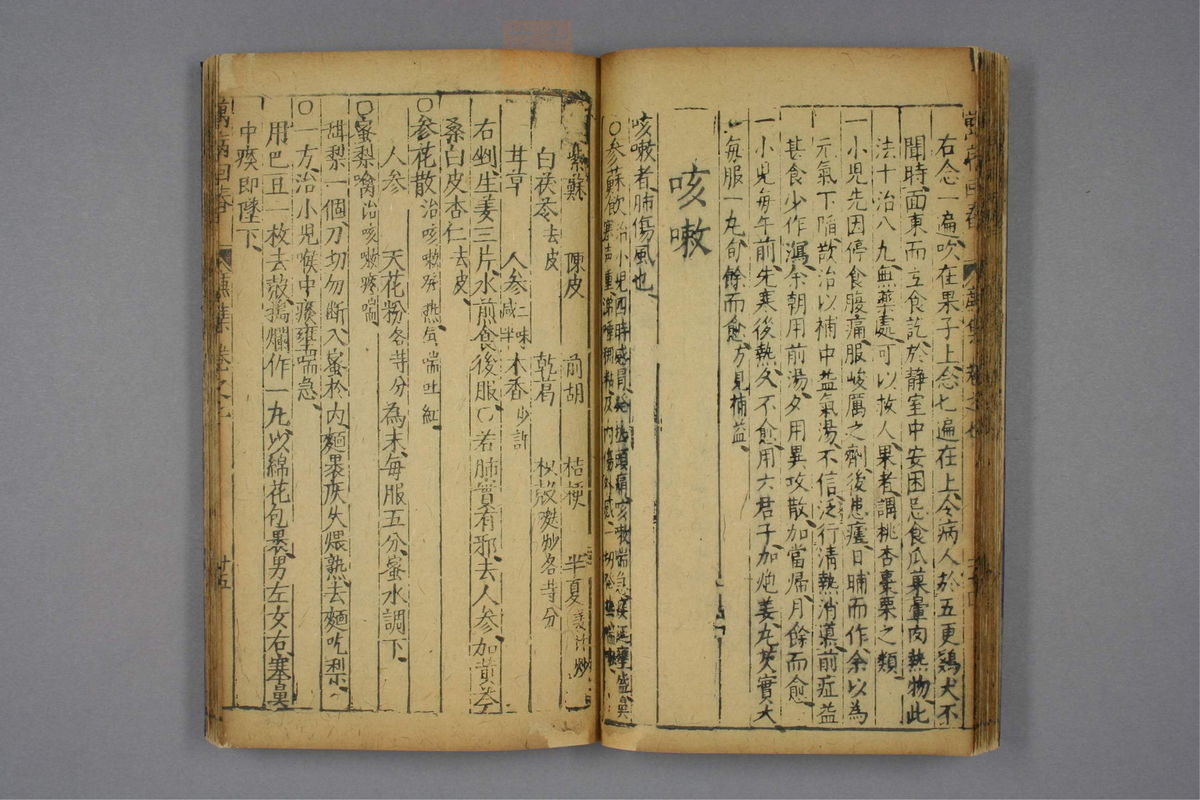 右念一遍吹在果子上念七遍在上令病人於五更鷄犬不
聞時面東而立食訖於靜室中安困忌食瓜菓葷肉熱物此
法十治八九無藥處可以救人果者謂桃杏棗栗之類
一小兒先因停食腹痛服峻厲之劑後患瘧日晡而作余以為
元氣下陷欲治以補中益氣湯不信泛行清熱消導前症益
甚食少作瀉余朝用前湯夕用異攻散加當歸月餘而愈
一小兒每午前先寒後熱久不愈用六君子加炮姜丸芡實大
每服一丸旬餘而愈方見補益
咳嗽
咳嗽者肺傷風也
○參蘇飲治小兒四時感冒發熱頭痛咳嗽喘急痰涎壅盛鼻
塞声重涕唾稠粘及內傷外感一切發熱
紫蘇 陳皮 前胡 桔梗 半夏姜汁炒
白茯苓去皮 乾葛 枳殼麩炒各等分
甘草 人參二味減半 木香少許
右剉生姜三片水煎食後服○若肺實有邪去人參加黃芩
桑白皮杏仁去皮
○參花散治咳嗽發熱気喘吐紅
人參 天花粉各等分為末每服五分蜜水調下
○蜜梨噙治咳嗽痰喘
甜梨一個刀切勿斷入蜜於內麵裹灰火煨熟去麵吃梨
○一方治小兒喉中痰壅喘急
用巴豆一枚去殼搗爛作一丸以綿花包裹男左女右塞鼻
中痰即墜下
萬病回春 卷之七 廿五